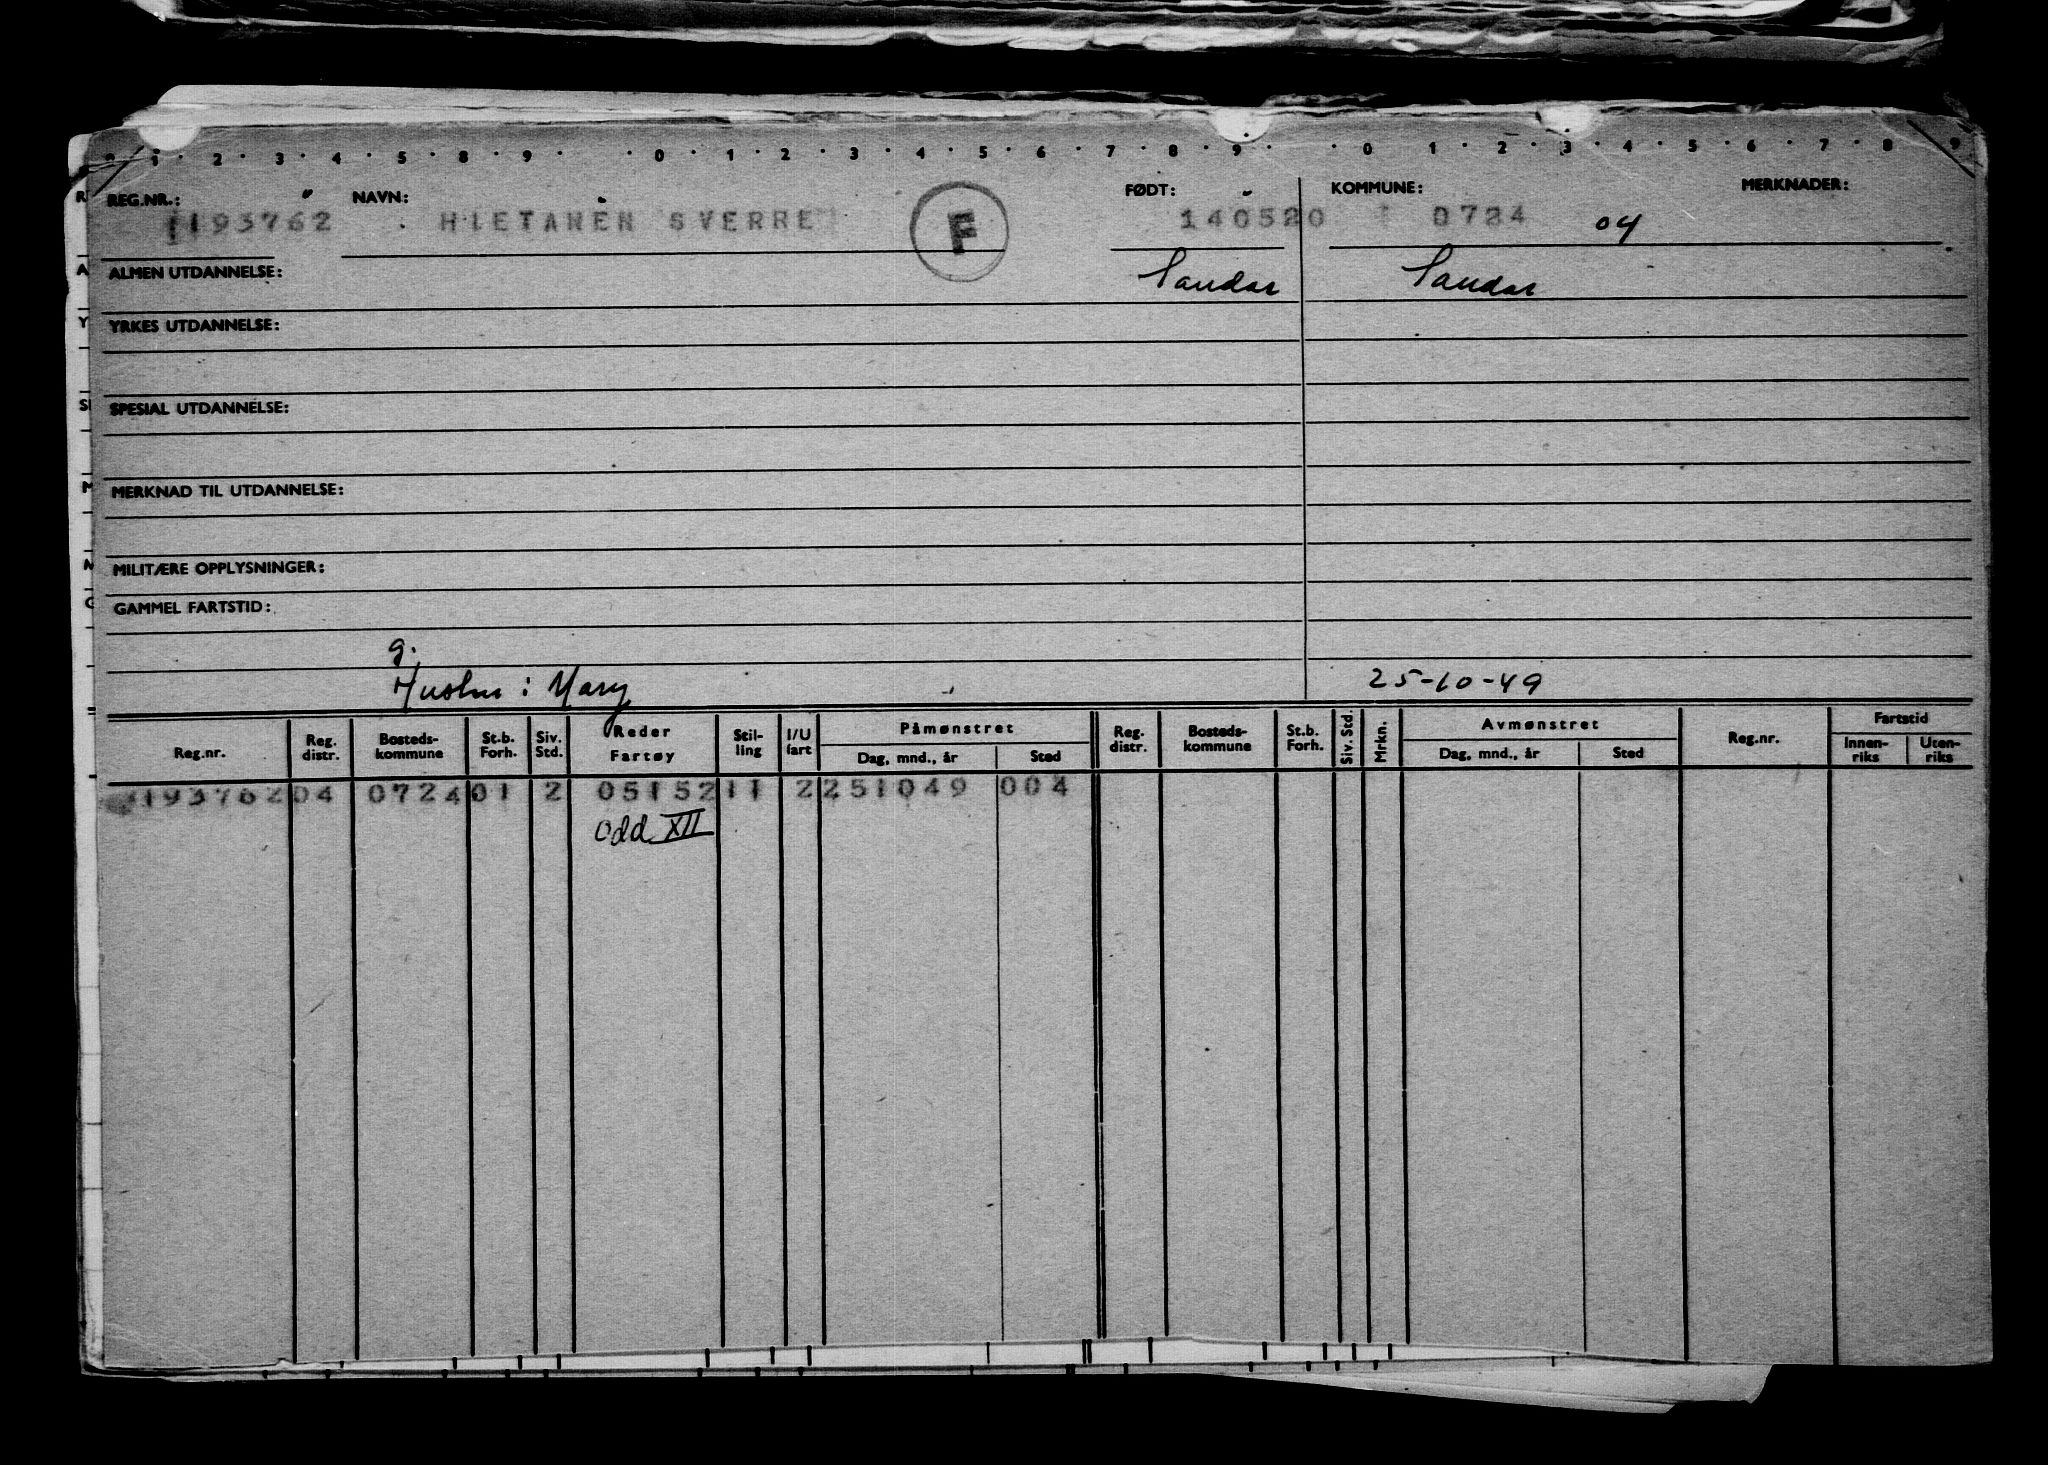 0 · 1 · 2 · 3 · 4 · 5 · 8 · 9 · · 0 · 1 · 2 · 3 · 4 · 5 · 6 · 7 · 8 · 9 · · 0 · 1 · 2 · 3 · 4 · 5 · 6 · 7 · 8 · 9
REG.NR.: NAVN: FØDT: KOMMUNE: MERKNADER:
193762 HIETANEN SVERRE F 140520 0724 04
ALMEN UTDANNELSE: Sandar Sandar
YRKES UTDANNELSE:
SPESIAL UTDANNELSE:
MERKNAD TIL UTDANNELSE:
MILITÆRE OPPLYSNINGER:
GAMMEL FARTSTID:
g.
Hustru: Mary 25-10-49
Reg.nr. Reg. distr. Bosteds- kommune St.b. Forh. Siv. Std. Reder Fartøy Stil- ling I/U fart Påmønstret Dag, mnd., år Sted Reg. distr. Bosteds- kommune St.b. Forh. Siv. Std. Mrkn. Avmønstret Dag, mnd., år Sted Reg.nr. Fartstid Innen- riks Uten- riks
193762 04 0724 01 2 05152 11 2 251049 004
Odd XII